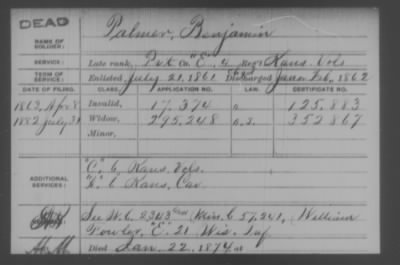 DEAD
Palmer, Benjamin
NAME OF SOLDIER:
SERVICE: Late rank, Pvt Co. "E", 4 Reg't Kans. Vols
TERM OF SERVICE: Enlisted July 21, 1861 Discharged Feb., 1862
DATE OF FILING. CLASS. APPLICATION NO. LAW. CERTIFICATE NO.
1863, Apr 8 Invalid, 17,374 125,883
1882 July 31 Widow, 295,248 352867
Minor,
ADDITIONAL SERVICES:
"C," 6, Kans. Vols.
6 Kans, Cav
See W.C. Min. C 57,241, William
Fowler, "E." 21 Wis. Inf.
Died Jan. 22, 1874, at